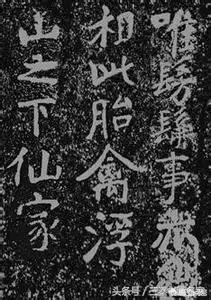 唯髣髴事
相此胎禽浮
山之下仙家
头条号/